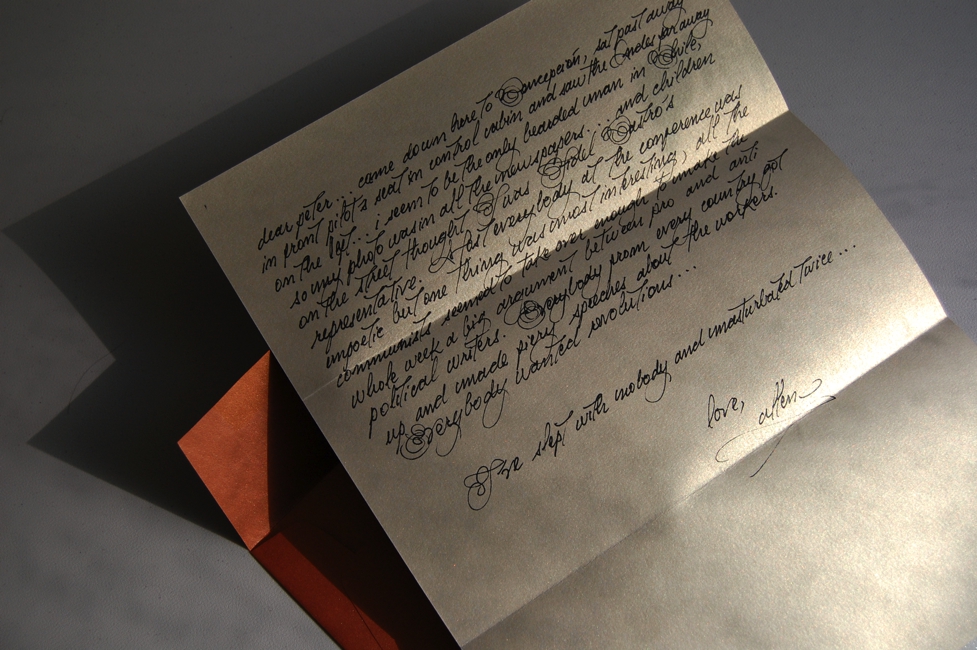 dear peter... came down here to Concepción, sat part away
in front pilot's seat in control cabin and saw the Andes far away
on the left... i seem to be the only bearded man in Chile,
so my photo was in all the newspapers... and children
on the street thought I was Fidel Castro's
representative. everybody at the conference was
unpoetic but one thing was most interesting, all the
communists seemed to take over enough to make the
whole week a big argument between pro and anti
political writers. Everybody from every country got
up and made fiery speeches about the workers.
Everybody wanted revolutions...
I've slept with nobody and masturbated twice...
love,
allen